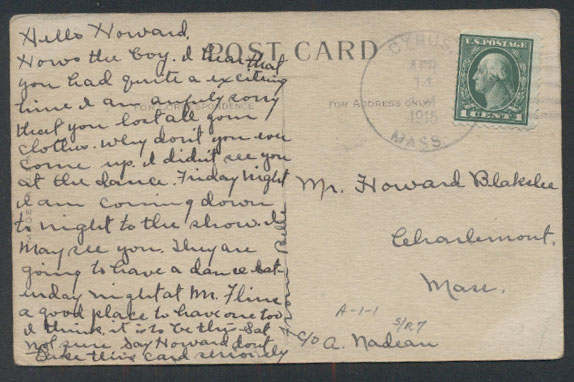 POST CARD
CORRESPONDENCE
FOR ADDRESS ONLY
Hello Howard,
Hows the boy. I hear that
you had quite a exciteing
time I am awfuly sorry
that you lost all your
clothes. Why don't you ever
come up. I didn't see you
at the dance. Friday night
I am coming down
to night to the show. I
may see you. They are
going to have a dance Sat-
urday night at Mr.
a good place to have one too
I think it is to be this Sat
not sure. Say Howard dont
take this card seriously
From Belle
CYRUS
APR
14
1915
MASS.
U.S. POSTAGE
1 CENT 1
Mr. Howard Blakslee
Charlemont.
Mass.
A-1-1
S/R7
c/o A. Nadeau